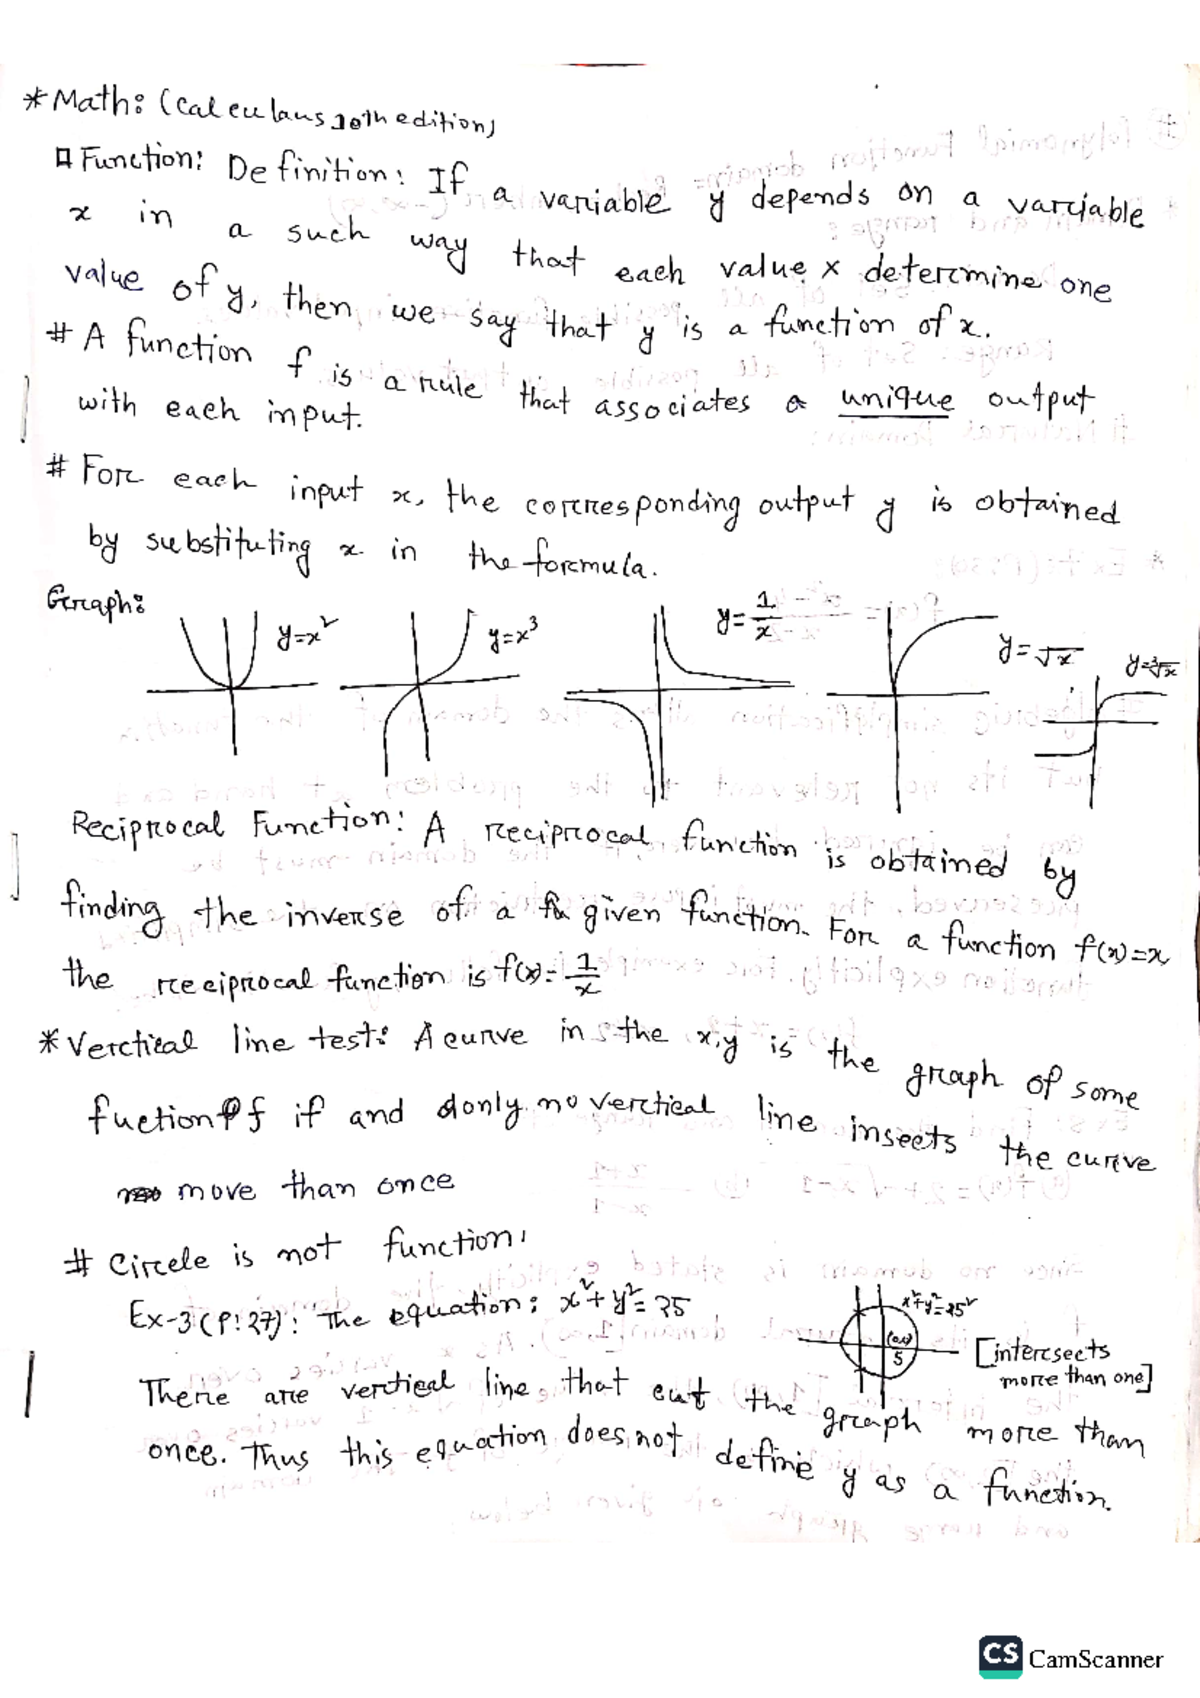 *Math: (Calculaus 10th edition)
Function: Definition: If a variable y depends on a variable
x in a such way that each value x determine one
value of y, then we say that y is a function of x.
# A function f is a rule that associates a unique output
with each input.
# For each input x, the corresponding output y is obtained
by substituting x in the formula.
Graph:
y=x²
y=x³
y=1/x
y=√x
y=³√x
Reciprocal Function: A reciprocal function is obtained by
finding the inverse of a given function. For a function f(x)=x
the reciprocal function is f(x)=1/x
*Vertical line test: A curve in the x,y is the graph of some
fuction f if and only no vertical line insects the curve
move than once
# Circle is not function.
Ex-3 (P:27): The equation: x²+y²=25
x²+y²=25²
(0,0)
5
[intersects
more than one]
There are vertical line that cut the graph more than
once. Thus this equation does not define y as a function.
CS CamScanner